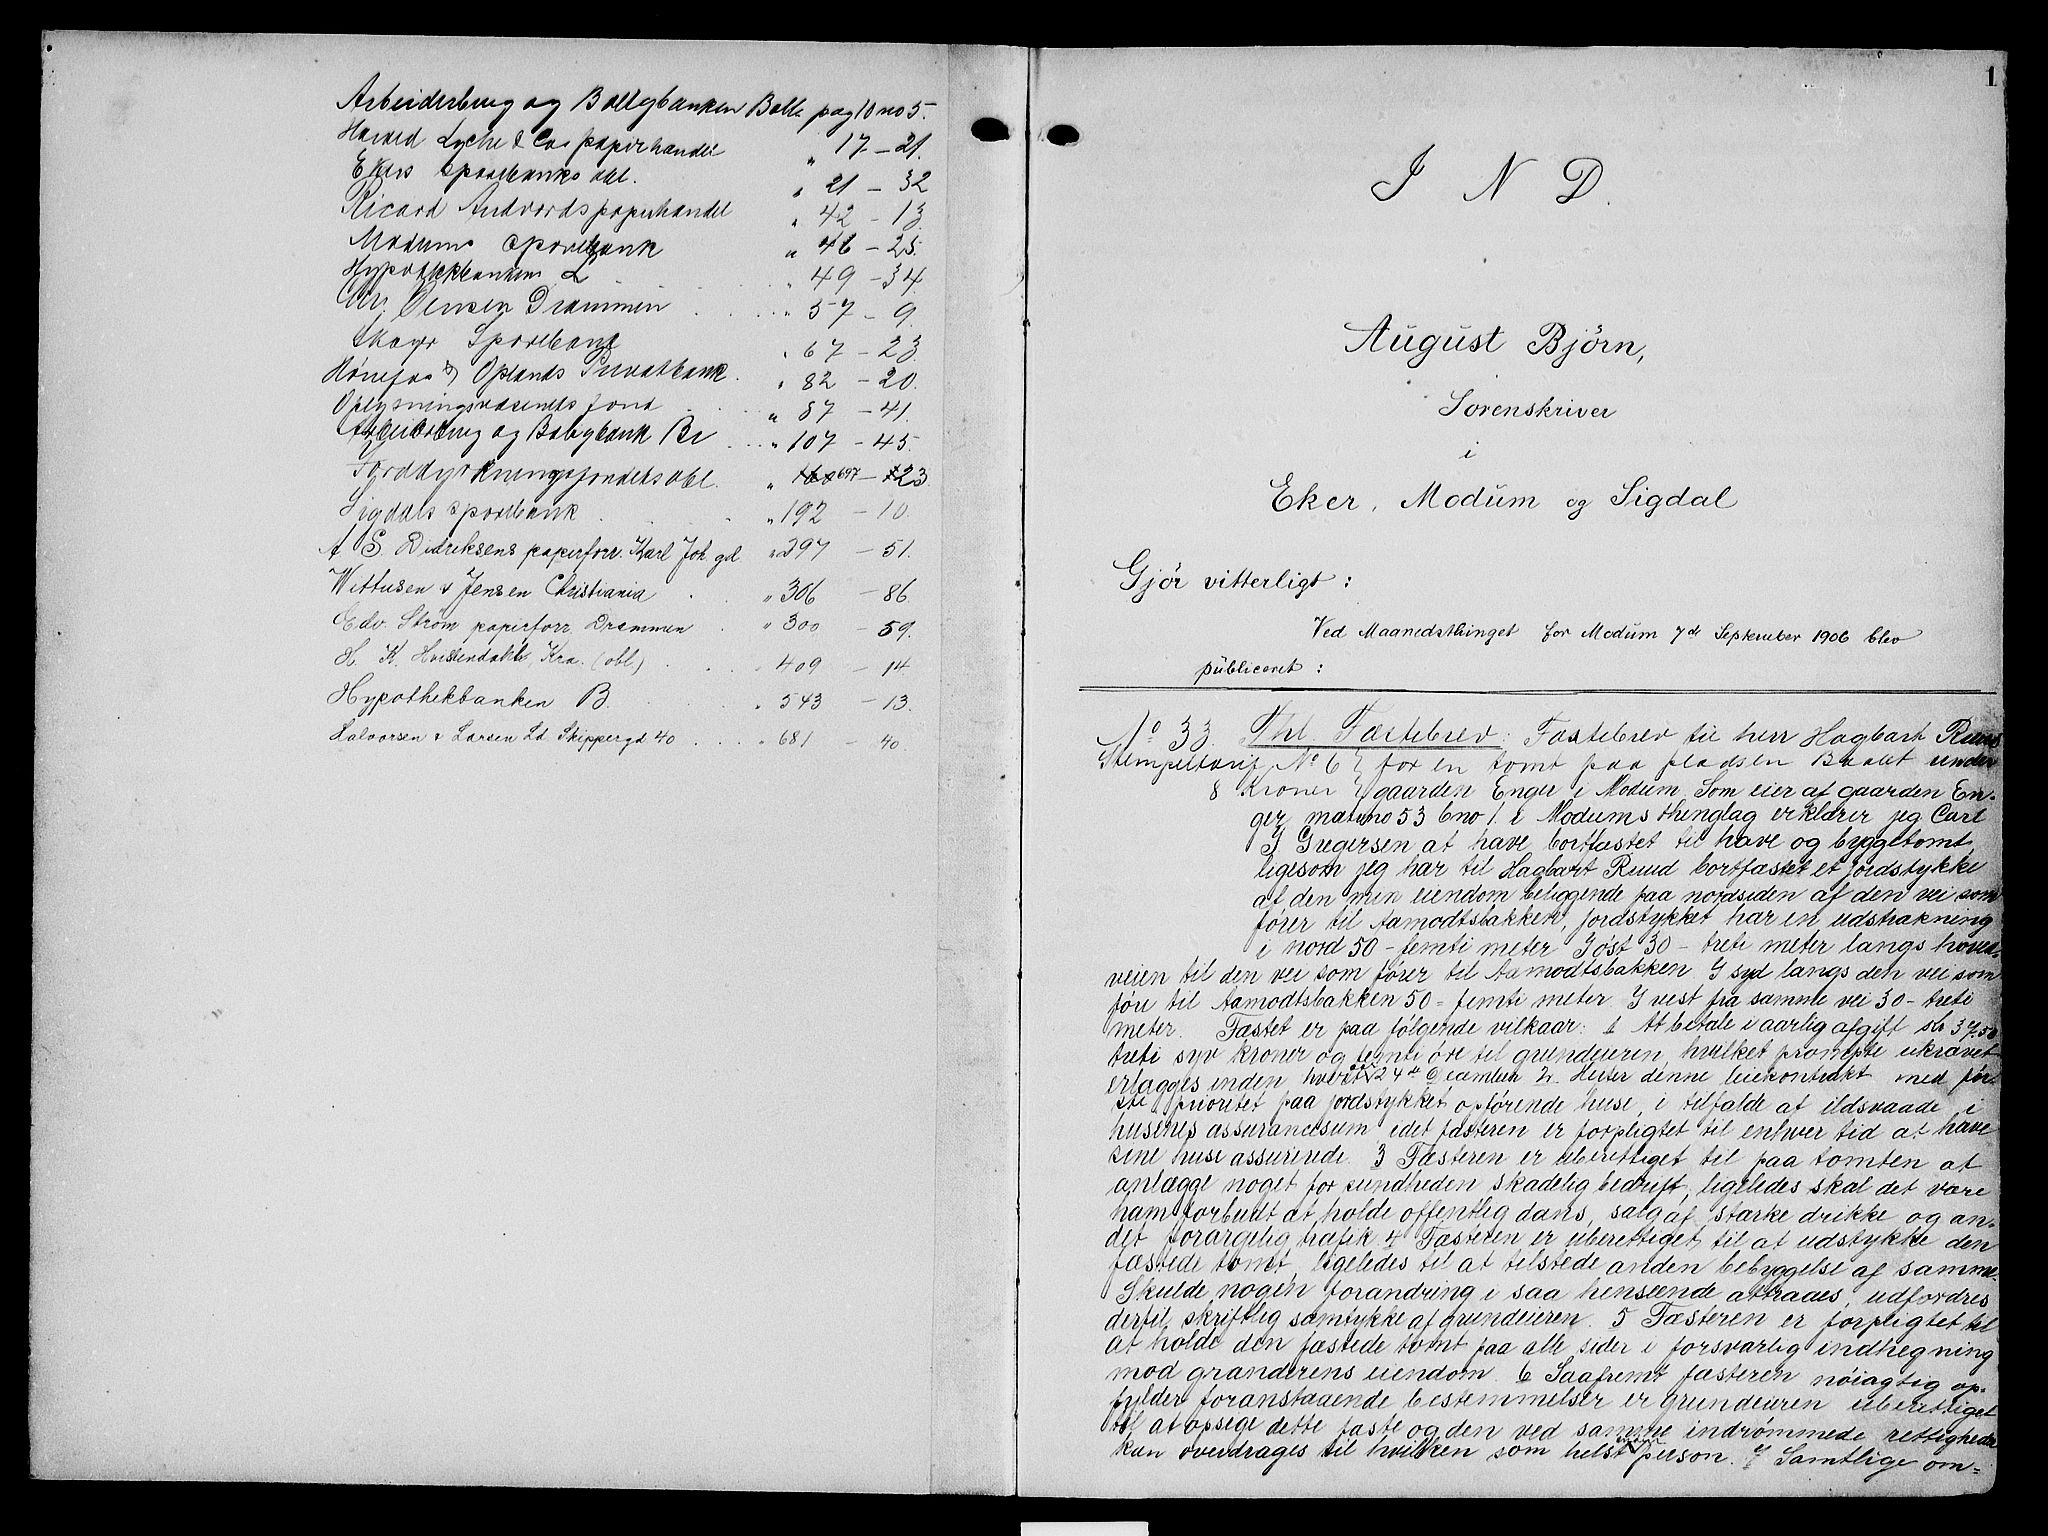 Arbeiderbrug og Boligbanken Bolle pag 10 no 5.
Harald Lyche & Co papirhandel " 17 - 21.
Ekers sparebanks obl. " 21 - 32
Ricard Andvords papirhandel " 42 - 13
Modums sparebank " 46 - 25.
Hypothekbanken L " 49 - 34.
Chr. Olensen Drammen " 57 - 9.
Sparebank " 67 - 23.
Hønefos & Oplands Privatbank " 82 - 20.
Oplysningsvæsenets fond " 87 - 41.
Arbeiderbrug og Boligbank Br " 107 - 45.
Jorddyrkningsfondets obl. " 697 - 23.
Sigdals sparebank " 192 - 10.
A S. Didriksens papirforr. Karl Joh. gd. " 297 - 51.
Wittusen & Jensen Christiania " 306 - 86.
Edv. Strøm papirforr. Drammen " 300 - 59.
H. K. Hvistendahls Kra. (obl.) " 409 - 14.
Hypothekbanken B. " 543 - 13.
Halvorsen & Larsen Ld Skippergd 40 " 681 - 40.
1
I N D.
August Bjørn,
Sorenskriver
i
Eker, Modum og Sigdal
Gjør vitterligt:
Ved Maanedsthinget for Modum 7de September 1906 blev
publiceret:
No 33. Thl. Fæstebrev: Fæstebrev til herr Hagbart Ruud
Stempeltarif No 6 } for en tomt paa pladsen Braatet under
8 Kroner } gaarden Enger i Modum. Som eier af gaarden En-
ger matrno 53 bno 1. i Modums thinglag erklærer jeg Carl
J Gregersen at have bortfæstet til have og byggetomt,
ligesom jeg har til Hagbart Ruud bortfæstet et jordstykke
af den min eiendom beliggende paa nordsiden af den vei som
fører til Aamodtsbakken, jordstykket har en udstrakning
i nord 50 - femti meter I øst 30 - treti meter langs hoved-
veien til den vei som fører til Aamodtsbakken I syd langs den vei som
føre til Aamodtsbakken 50 - femti meter I vest fra samme vei 30 - treti
meter. Fæstet er paa følgende vilkaar: 1 At betale i aarlig afgift kr 37,50
treti syv kroner og femti øre til grundeieren, hvilket prompte ukrævet
erlægges inden hvert aars 24de December 2. Hefter denne leiekontrakt med før-
ste prioritet paa jordstykket opførende huse, i tilfalde af ildsvaade i
husenes assurancesum idet fæsteren er forpligtet til enhver tid at have
sine huse assurerede. 3 Fæsteren er uberettiget til paa tomten at
anlægge noget for sundheden skadelig bedrift, ligeledes skal det være
ham forbudt at holde offentlig dans, salg af stærke drikke og an-
det forargelig trafik 4 Fæsteren er uberettiget til at udstykke den
fæstede tomt, ligeledes til at tilstede anden bebyggelse af samme.
Skulde nogen forandring i saa henseende attraaes, udfordres
dertil skriftlig samtykke af grundeieren. 5 Fæsteren er forpligtet til
at holde den fæstede tomt paa alle sider i forsvarlig indhegning
mod granderens eiendom. 6 Saafremt fæsteren nøiagtig op-
fylder foranstaaende bestemmelser er grundeieren uberettiget
til at opsege dette fæste og den ved samme indrømmede rettigheder
kan overdrages til hvilken som helst person. 7 Samtlige om-